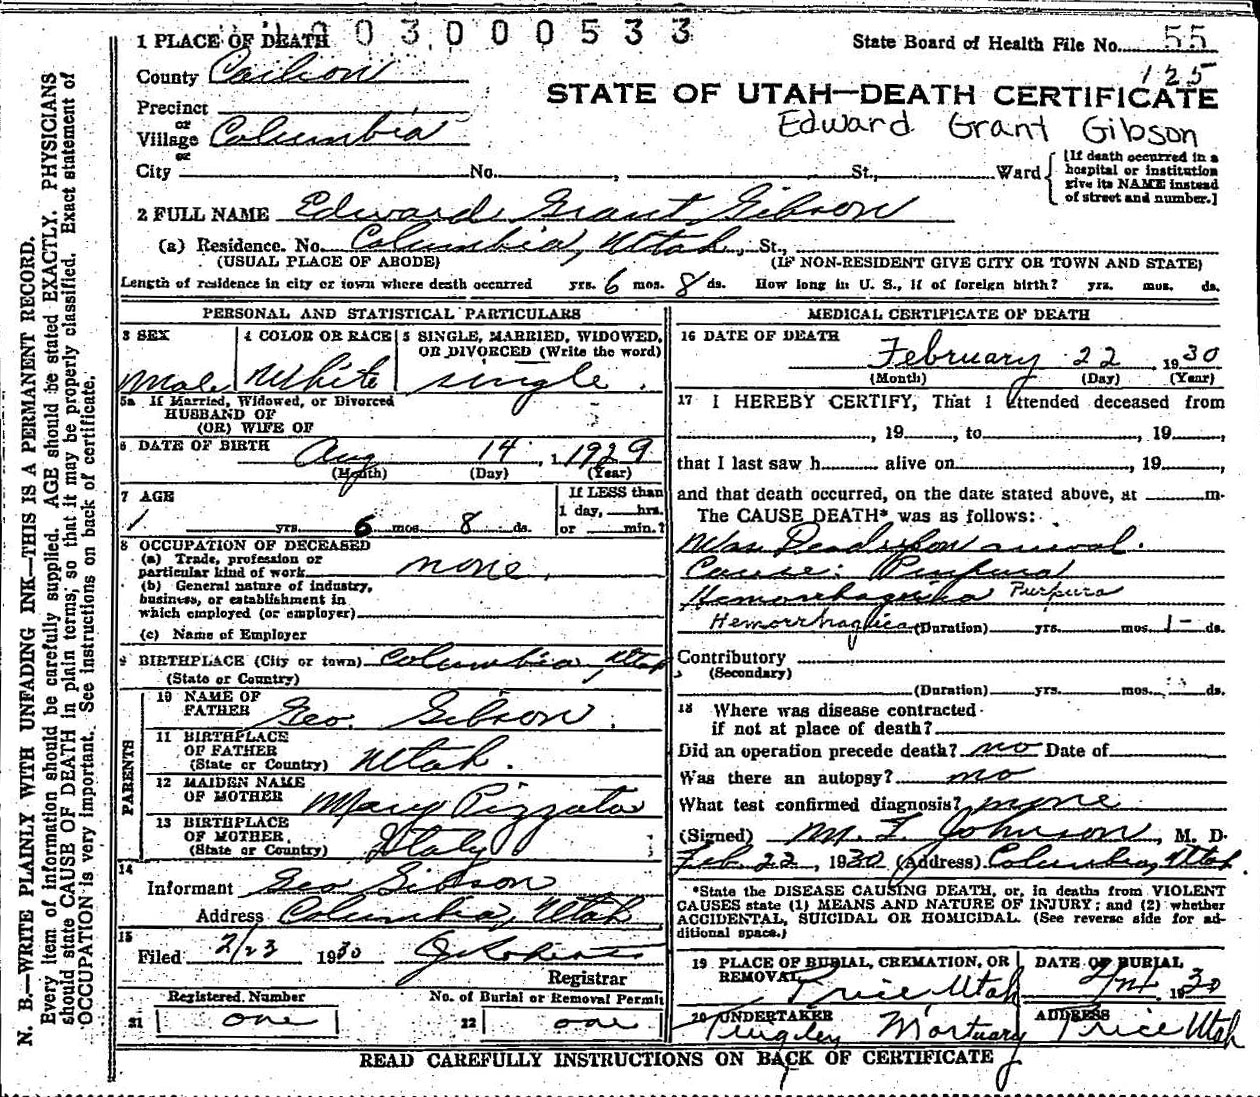 003000533
1 PLACE OF DEATH
State Board of Health File No. 55
125
County Carbon
STATE OF UTAH—DEATH CERTIFICATE
Edward Grant Gibson
Precinct
or
Village Columbia
or
City No. , St., Ward
[If death occurred in a
hospital or institution
give its NAME instead
of street and number.]
2 FULL NAME Edward Grant Gibson
(a) Residence. No. Columbia, Utah, St.,
(USUAL PLACE OF ABODE) (IF NON-RESIDENT GIVE CITY OR TOWN AND STATE)
Length of residence in city or town where death occurred yrs. 6 mos. 8 ds. How long in U. S., if of foreign birth? yrs. mos. ds.
PERSONAL AND STATISTICAL PARTICULARS
3 SEX 4 COLOR OR RACE 5 SINGLE, MARRIED, WIDOWED,
OR DIVORCED (Write the word)
Male White single.
5a If Married, Widowed, or Divorced
HUSBAND OF
(OR) WIFE OF
6 DATE OF BIRTH Aug 14, 1929
(Month) (Day) (Year)
7 AGE If LESS than
1 day, hrs.
1 yrs. 6 mos. 8 ds. or min.?
8 OCCUPATION OF DECEASED
(a) Trade, profession or
particular kind of work none.
(b) General nature of industry,
business, or establishment in
which employed (or employer)
(c) Name of Employer
9 BIRTHPLACE (City or town) Columbia, Utah
(State or Country)
PARENTS
10 NAME OF
FATHER Geo. Gibson.
11 BIRTHPLACE
OF FATHER
(State or Country) Utah.
12 MAIDEN NAME
OF MOTHER Mary Pizzato
13 BIRTHPLACE
OF MOTHER
(State or Country) Italy
14
Informant Geo Gibson
Address Columbia, Utah
15
Filed 2/23 1930
Registrar
Registered Number No. of Burial or Removal Permit
21 one 22 one
MEDICAL CERTIFICATE OF DEATH
16 DATE OF DEATH
February 22 1930
(Month) (Day) (Year)
17 I HEREBY CERTIFY, That I attended deceased from
, 19 , to , 19 ,
that I last saw h alive on , 19 ,
and that death occurred, on the date stated above, at m.
The CAUSE DEATH* was as follows:
Was Dead upon arrival.
Cause: Purpura
Hemorrhagica Purpura
Hemorrhagica (Duration) yrs. mos. 1- ds.
Contributory
(Secondary)
(Duration) yrs. mos. ds.
18 Where was disease contracted
if not at place of death?
Did an operation precede death? no Date of
Was there an autopsy? no
What test confirmed diagnosis? none
(Signed) M. T. Johnson, M. D.
Feb. 22, 1930 (Address) Columbia, Utah
*State the DISEASE CAUSING DEATH, or, in deaths from VIOLENT
CAUSES state (1) MEANS AND NATURE OF INJURY; and (2) whether
ACCIDENTAL, SUICIDAL OR HOMICIDAL. (See reverse side for ad-
ditional space.)
19 PLACE OF BURIAL, CREMATION, OR
REMOVAL Price Utah
DATE OF BURIAL
2/24 1930
20 UNDERTAKER
Mortuary
ADDRESS
Price Utah
READ CAREFULLY INSTRUCTIONS ON BACK OF CERTIFICATE
N. B.—WRITE PLAINLY WITH UNFADING INK—THIS IS A PERMANENT RECORD.
Every item of information should be carefully supplied. AGE should be stated EXACTLY. PHYSICIANS
should state CAUSE OF DEATH in plain terms, so that it may be properly classified. Exact statement of
OCCUPATION is very important. See instructions on back of certificate.